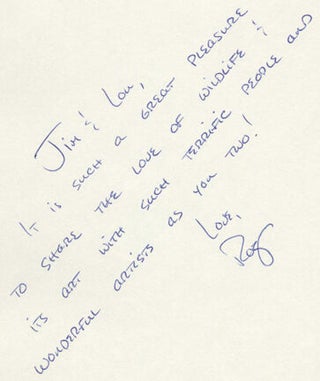 Jim & Lou,
It is such a great pleasure
to share the love of wildlife &
its art with such terrific people and
wonderful artists as you two!
Love,